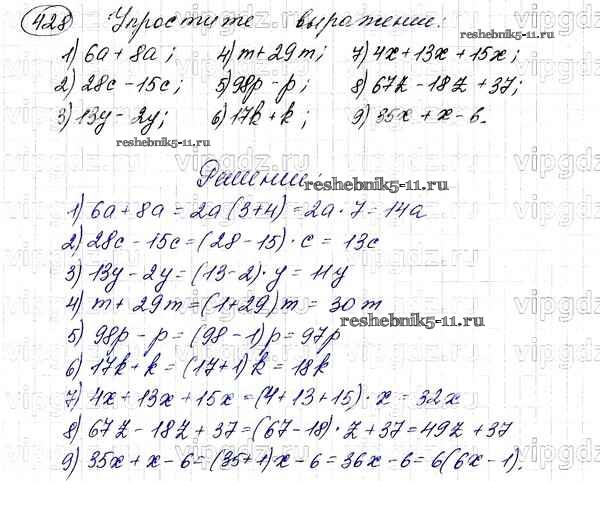 428 Упростите выражение:
1) 6a + 8a; 4) m + 29m; 7) 4x + 13x + 15x;
2) 28c - 15c; 5) 98p - p; 8) 67z - 18z + 37;
3) 13y - 2y; 6) 17k + k; 9) 35x + x - 6.
reshebnik5-11.ru
reshebnik5-11.ru
Решение:
reshebnik5-11.ru
1) 6a + 8a = 2a (3+4) = 2a · 7 = 14a
2) 28c - 15c = (28 - 15) · c = 13c
3) 13y - 2y = (13-2) · y = 11y
4) m + 29m = (1+29) m = 30m
reshebnik5-11.ru
5) 98p - p = (98 - 1)p = 97p
6) 17k + k = (17+1) k = 18k
7) 4x + 13x + 15x = (4+13+15) · x = 32x
8) 67z - 18z + 37 = (67-18) · z + 37 = 49z + 37
9) 35x + x - 6 = (35+1)x - 6 = 36x - 6 = 6(6x - 1).
vipgdz.ru